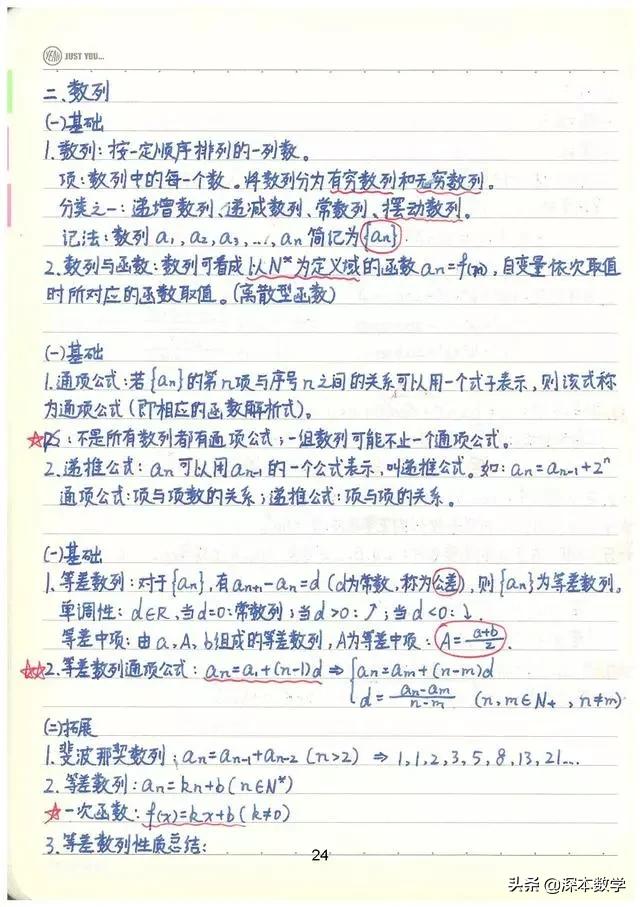 YEAH JUST YOU...
二、数列
(一)基础
1.数列:按一定顺序排列的一列数。
项:数列中的每一个数。将数列分为有穷数列和无穷数列。
分类之一:递增数列、递减数列、常数列、摆动数列。
记法:数列a₁, a₂, a₃, ..., aₙ 简记为{aₙ}
2.数列与函数:数列可看成以N*为定义域的函数aₙ=f(n),自变量依次取值
时所对应的函数取值。(离散型函数)
(一)基础
1.通项公式:若{aₙ}的第n项与序号n之间的关系可以用一个式子表示,则该式称
为通项公式(即相应的函数解析式)。
☆PS:不是所有数列都有通项公式;一组数列可能不止一个通项公式。
2.递推公式:aₙ可以用aₙ₋₁的一个公式表示,叫递推公式。如:aₙ=aₙ₋₁+2ⁿ
通项公式:项与项数的关系;递推公式:项与项的关系。
(一)基础
1.等差数列:对于{aₙ},有aₙ₊₁-aₙ=d(d为常数,称为公差),则{aₙ}为等差数列。
单调性:d∈R,当d=0:常数列;当d>0:↗;当d<0:↘.
等差中项:由a, A, b组成的等差数列,A为等差中项:A=(a+b)/2.
☆☆2.等差数列通项公式:aₙ=a₁+(n-1)d ⇒ {aₙ=aₘ+(n-m)d
d=(aₙ-aₘ)/(n-m) (n,m∈N₊,n≠m)
(二)拓展
1.斐波那契数列:aₙ=aₙ₋₁+aₙ₋₂(n>2) ⇒ 1,1,2,3,5,8,13,21...
2.等差数列:aₙ=kn+b(n∈N*)
☆一次函数:f(x)=kx+b(k≠0)
3.等差数列性质总结:
24
头条@深本数学